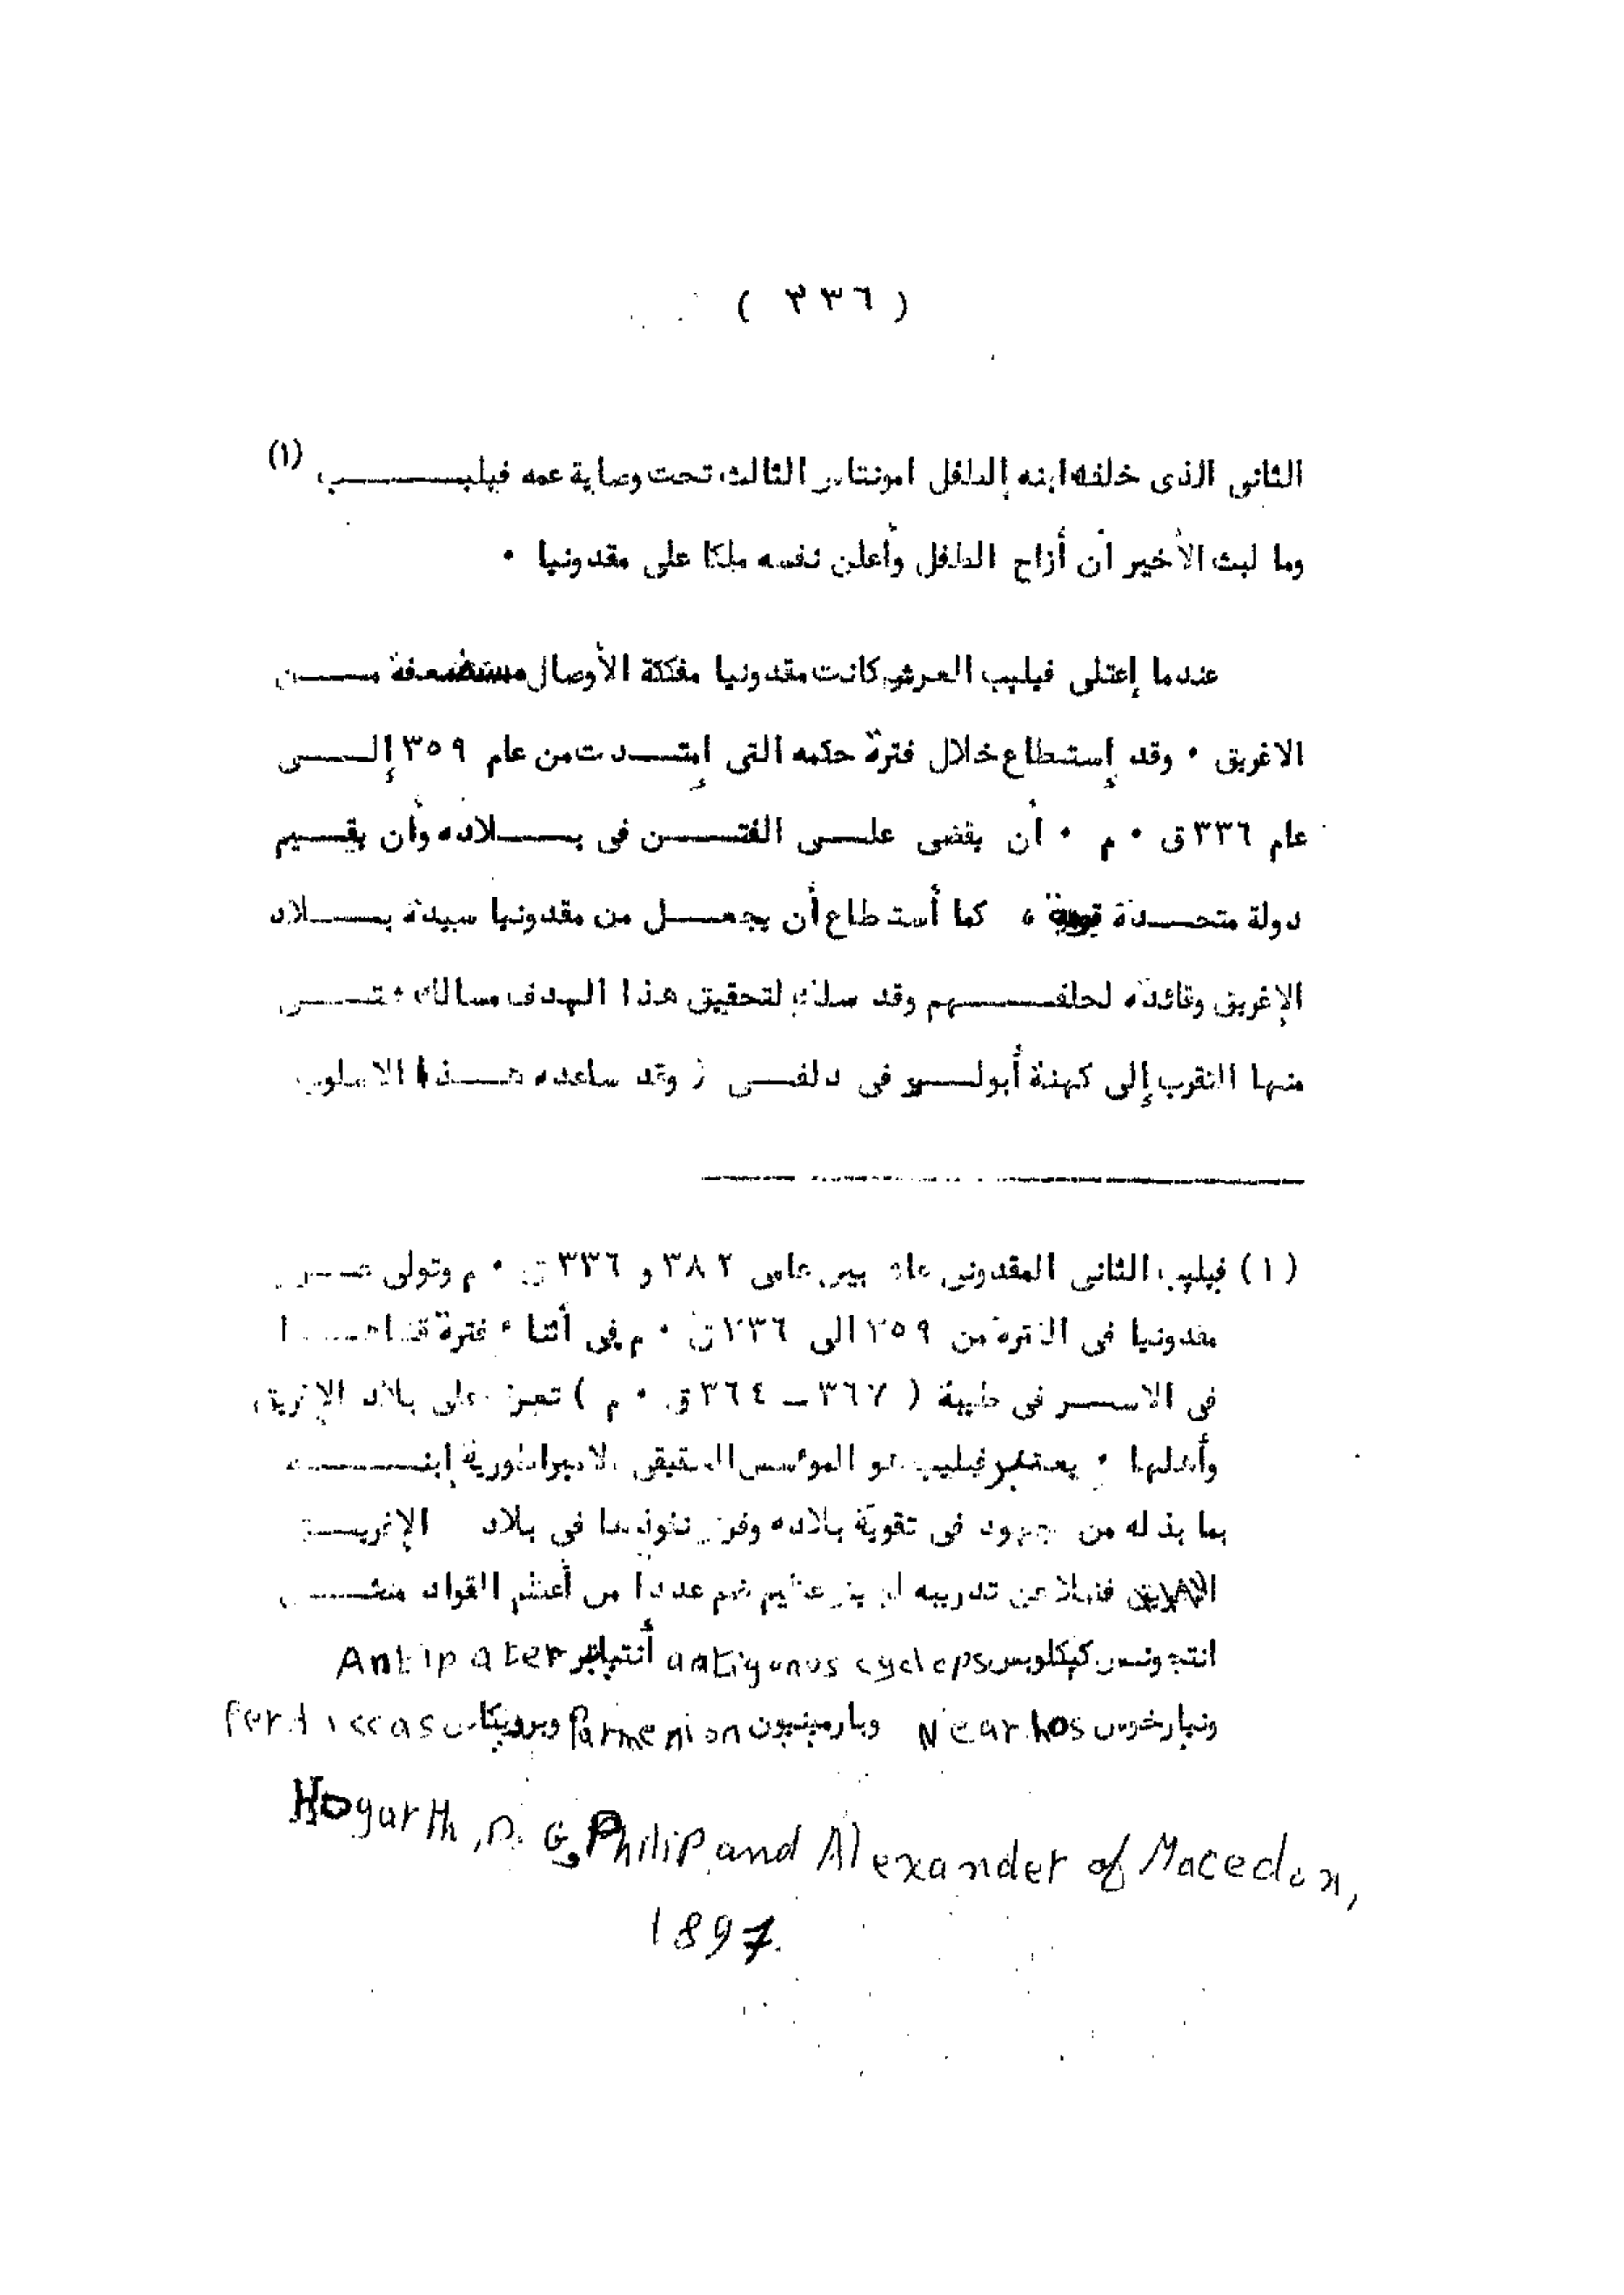 ( ٣٣٦ )
الثانى الذى خلفه ابنه الطفل امونتاس الثالث تحت وصاية عمه فيليب (١)
وما لبث الأخير أن أزاح الطفل وأعلن نفسه ملكا على مقدونيا ٠
عندما إعتلى فيليب العرش كانت مقدونيا مفككة الأوصال مستضعفة من
الاغريق ٠ وقد إستطاع خلال فترة حكمه التى إمتدت من عام ٣٥٩ إلى
عام ٣٣٦ ق ٠ م ٠ أن يقضى على الفتن فى بلاده وأن يقيم
دولة متحدة قوية ، كما أستطاع أن يجعل من مقدونيا سيدة بلاد
الإغريق وقائدة لحلفهم وقد سلك لتحقيق هذا الهدف مسالك شتى
منها التقرب إلى كهنة أبولو فى دلفى ( وقد ساعده هذا الاسلوب
(١) فيليب الثانى المقدونى عاش بين عامى ٣٨٢ و ٣٣٦ ق ٠ م وتولى عرش
مقدونيا فى الفترة من ٣٥٩ الى ٣٣٦ ق ٠ م فى أثناء فترة قضاها
فى الاسر فى طيبة ( ٣٦٧ - ٣٦٤ ق ٠ م ) تعرف على بلاد الإغريق
وأهلها ٠ يعتبر فيليب هو المؤسس الحقيقى لامبراطورية إبنه
بما بذله من جهود فى تقوية بلاده وفرض نفوذها فى بلاد الإغريق
فضلا عن تدريبه لجيش عظيم ضم عددا من أعظم القواد
انتجونس كيكلوبس antigonus cyclops أنتيباتر Antipater
ونيارخوس Nearhos وبارمينيون Parmenion وبرديكاس Perdiccas
Hogarth, D. G, Philip and Alexander of Macedon,
1897.